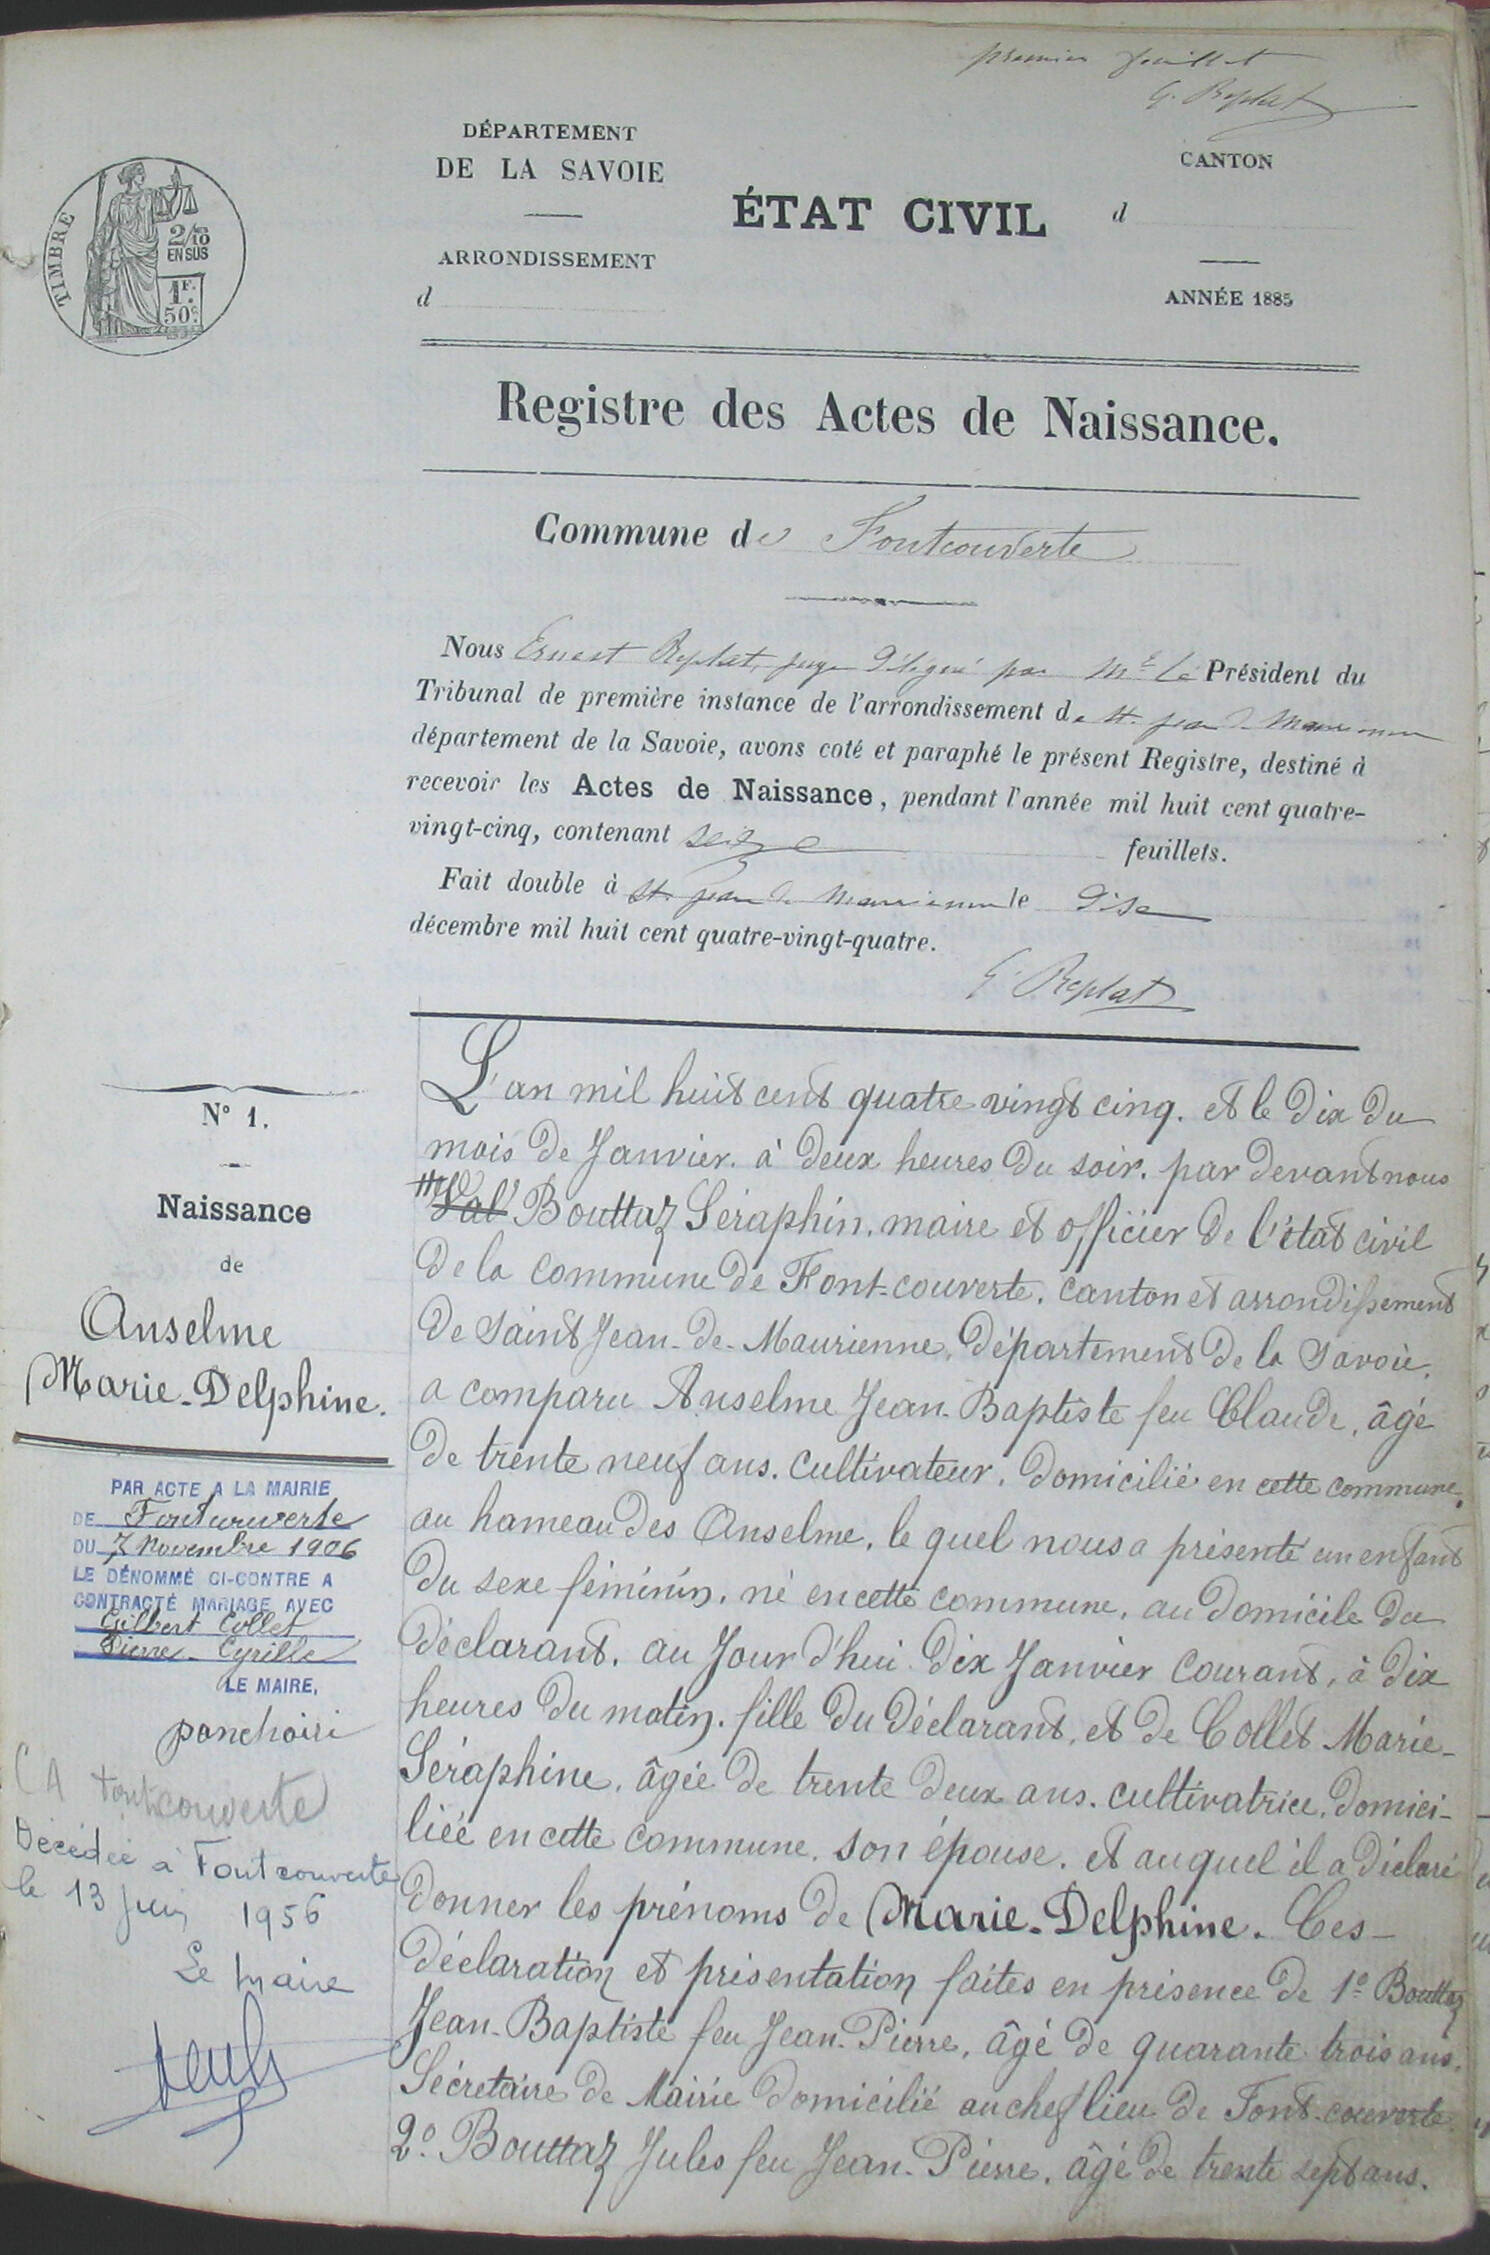 premier feuillet
G. Replat
TIMBRE
2/10
EN SUS
1F.
50c.
DÉPARTEMENT
DE LA SAVOIE
ARRONDISSEMENT
d
ÉTAT CIVIL
CANTON
d
ANNÉE 1885
Registre des Actes de Naissance.
Commune de Fontcouverte
Nous Ernest Replat, juge délégué par Mr. Le Président du
Tribunal de première instance de l'arrondissement de St. Jean de Maurienne
département de la Savoie, avons coté et paraphé le présent Registre, destiné à
recevoir les Actes de Naissance, pendant l'année mil huit cent quatre-
vingt-cinq, contenant seize feuillets.
Fait double à St. Jean de Maurienne le dix
décembre mil huit cent quatre-vingt-quatre.
G. Replat
N° 1.
Naissance
de
Anselme
Marie-Delphine.
PAR ACTE A LA MAIRIE
DE Fontcouverte
DU 7 Novembre 1906
LE DÉNOMMÉ CI-CONTRE A
CONTRACTÉ MARIAGE AVEC
Gilbert Collet
Pierre-Cyrille
LE MAIRE,
CA Fontcouverte
Décédée à Fontcouverte
le 13 Juin 1956
Le Maire
L'an mil huit cent quatre vingt cinq. et le dix du
mois de Janvier. à deux heures du soir. par devant nous
Bouttaz Séraphin, maire et officier de l'état civil
de la commune de Font-couverte. canton et arrondissement
de Saint Jean-de-Maurienne, département de la Savoie.
a comparu Anselme Jean-Baptiste feu Claude, âgé
de trente neuf ans. cultivateur. domicilié en cette commune.
au hameau des Anselme. le quel nous a présenté un enfant
du sexe féminin. né en cette commune. au domicile du
déclarant. au Jour d'hui dix Janvier courant, à dix
heures du matin. fille du déclarant, et de Collet Marie-
Séraphine. âgée de trente deux ans. cultivatrice. domici-
liée en cette commune. son épouse. et auquel il a déclaré
donner les prénoms de Marie-Delphine. Ces
déclaration et présentation faites en présence de 1° Bouttaz
Jean-Baptiste feu Jean-Pierre, âgé de quarante trois ans.
Sécretaire de Mairie domicilié au chef lieu de Font-couverte.
2° Bouttaz Jules feu Jean-Pierre. âgé de trente sept ans.